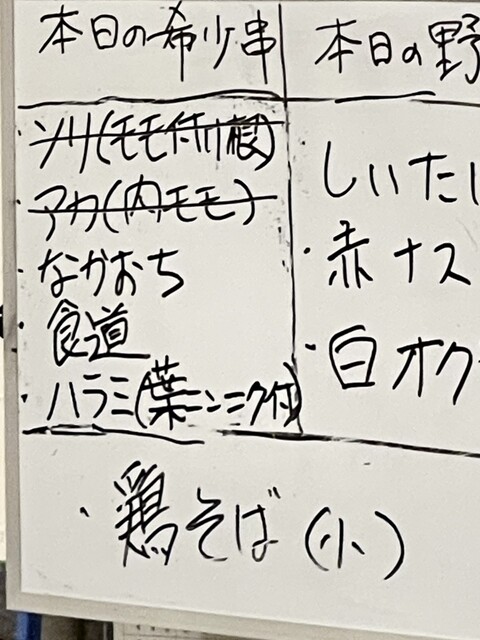 本日の希少串
ソリ(モモ付け根)
アカ(内モモ)
・なかおち
・食道
・ハラミ(葉ニンニク付)
本日の野
しいた
・赤ナス
・白オク
・鶏そば(小)